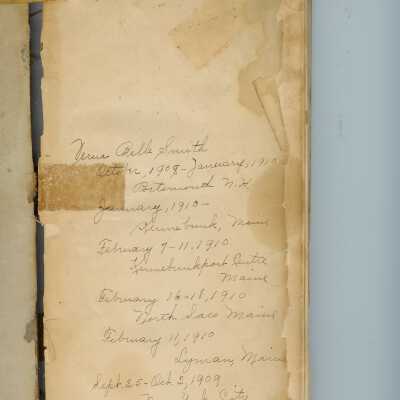 Verna Belle Smith
October, 1908 - January, 1910
Portsmouth N.H.
January, 1910 -
Kennebunk, Maine
February 7-11, 1910
Kennebunkport Centre
Maine
February 16-18, 1910
North Saco Maine
February 11, 1910
Lyman, Maine
Sept. 25 - Oct 2, 1909
New York City